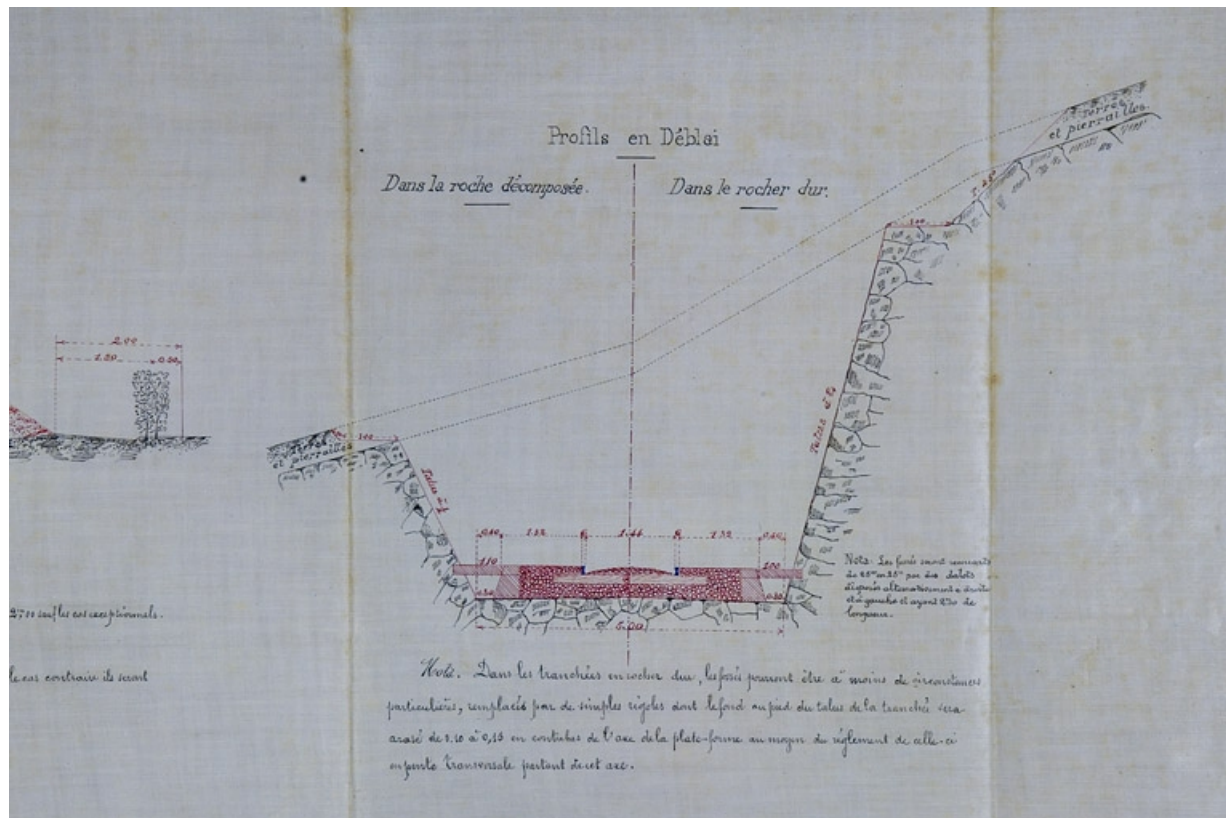 Profils en Déblai
Dans la roche décomposée.
Dans le rocher dur.
Terres
et pierrailles.
1.00
2.00
1.50 0.50
Terres
et pierrailles
1.00
Talus à
Talus à
0.60 1.32 1.46 1.32 0.60
5.00
Nota: Les fossés seront
de 25m en 25m par des
alternativement à droite
et à gauche et ayant de
longueur.
sauf les cas exceptionnels.
le cas contraire ils seront
Nota. Dans les tranchées en rocher dur, les fossés pourront être à moins de circonstances
particulières, remplacés par de simples rigoles dont le fond au pied du talus de la tranchée sera
arasé de 0.10 à 0,15 en contrebas de l'axe de la plate-forme au moyen du réglement de celle-ci
en pente transversale partant de cet axe.